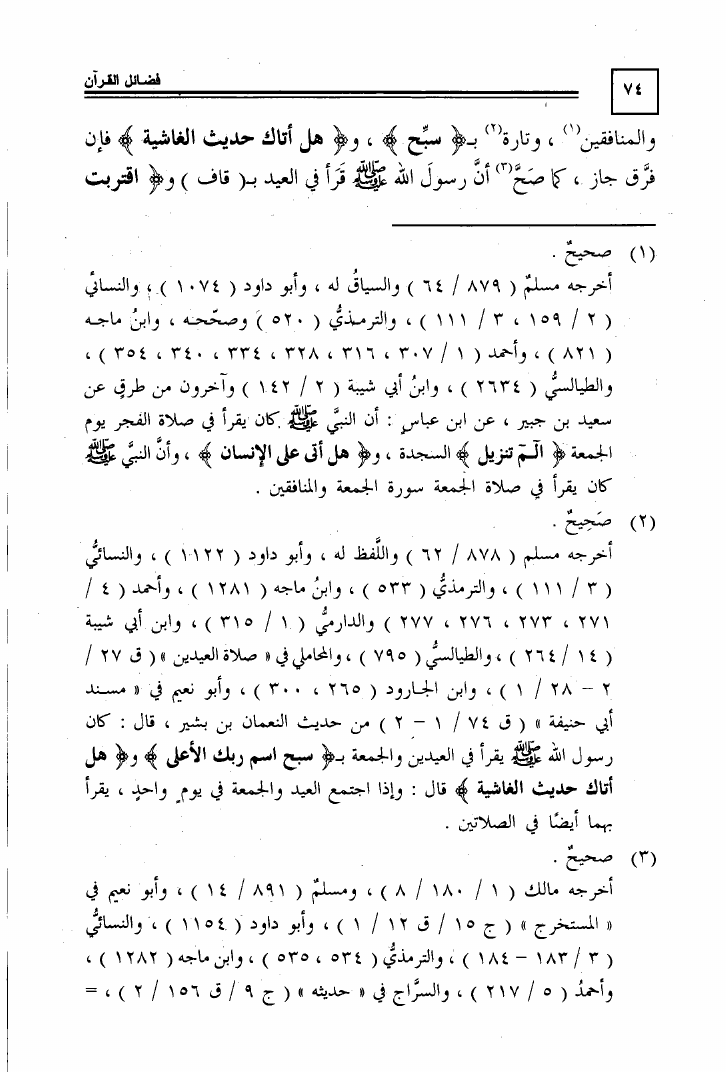 ٧٤
فضائل القرآن
والمنافقين(١) ، وتارة(٢) بـ﴿ سبِّح ﴾ ، و﴿ هل أتاك حديث الغاشية ﴾ فإن
فرَّق جاز ، كما صَحَّ(٣) أنَّ رسولَ الله ﷺ قَرَأ في العيد بـ( قاف ) و﴿ اقتربت
(١) صحيحٌ .
أخرجه مسلمٌ ( ٨٧٩ / ٦٤ ) والسياقُ له ، وأبو داود ( ١٠٧٤ ) ، والنسائي
( ٢ / ١٥٩ ، ٣ / ١١١ ) ، والترمذيُّ ( ٥٢٠ ) وصحّحه ، وابنُ ماجه
( ٨٢١ ) ، وأحمد ( ١ / ٣٠٧ ، ٣١٦ ، ٣٢٨ ، ٣٣٤ ، ٣٤٠ ، ٣٥٤ ) ،
والطيالسيُّ ( ٢٦٣٤ ) ، وابنُ أبي شيبة ( ٢ / ١٤٢ ) وآخرون من طرقٍ عن
سعيد بن جبير ، عن ابن عباسٍ : أن النبيَّ ﷺ كان يقرأ في صلاة الفجر يوم
الجمعة ﴿ الٓـمٓ تنزيل ﴾ السجدة ، و﴿ هل أتى على الإنسان ﴾ ، وأنَّ النبيَّ ﷺ
كان يقرأ في صلاة الجمعة سورة الجمعة والمنافقين .
(٢) صَحِيحٌ .
أخرجه مسلم ( ٨٧٨ / ٦٢ ) واللَّفظ له ، وأبو داود ( ١١٢٢ ) ، والنسائيُّ
( ٣ / ١١١ ) ، والترمذيُّ ( ٥٣٣ ) ، وابنُ ماجه ( ١٢٨١ ) ، وأحمد ( ٤ /
٢٧١ ، ٢٧٣ ، ٢٧٦ ، ٢٧٧ ) والدارميُّ ( ١ / ٣١٥ ) ، وابن أبي شيبة
( ١٤ / ٢٦٤ ) ، والطيالسيُّ ( ٧٩٥ ) ، والمحاملي في « صلاة العيدين » ( ق ٢٧ /
٢ – ٢٨ / ١ ) ، وابن الجارود ( ٢٦٥ ، ٣٠٠ ) ، وأبو نعيم في « مسند
أبي حنيفة » ( ق ٧٤ / ١ – ٢ ) من حديث النعمان بن بشير ، قال : كان
رسول الله ﷺ يقرأ في العيدين والجمعة بـ﴿ سبح اسم ربك الأعلى ﴾ و﴿ هل
أتاك حديث الغاشية ﴾ قال : وإذا اجتمع العيد والجمعة في يومٍ واحدٍ ، يقرأ
بهما أيضًا في الصلاتين .
(٣) صحيحٌ .
أخرجه مالك ( ١ / ١٨٠ / ٨ ) ، ومسلمٌ ( ٨٩١ / ١٤ ) ، وأبو نعيم في
« المستخرج » ( ج ١٥ / ق ١٢ / ١ ) ، وأبو داود ( ١١٥٤ ) ، والنسائيُّ
( ٣ / ١٨٣ – ١٨٤ ) ، والترمذيُّ ( ٥٣٤ ، ٥٣٥ ) ، وابن ماجه ( ١٢٨٢ ) ،
وأحمدُ ( ٥ / ٢١٧ ) ، والسرَّاج في « حديثه » ( ج ٩ / ق ١٥٦ / ٢ ) ، =